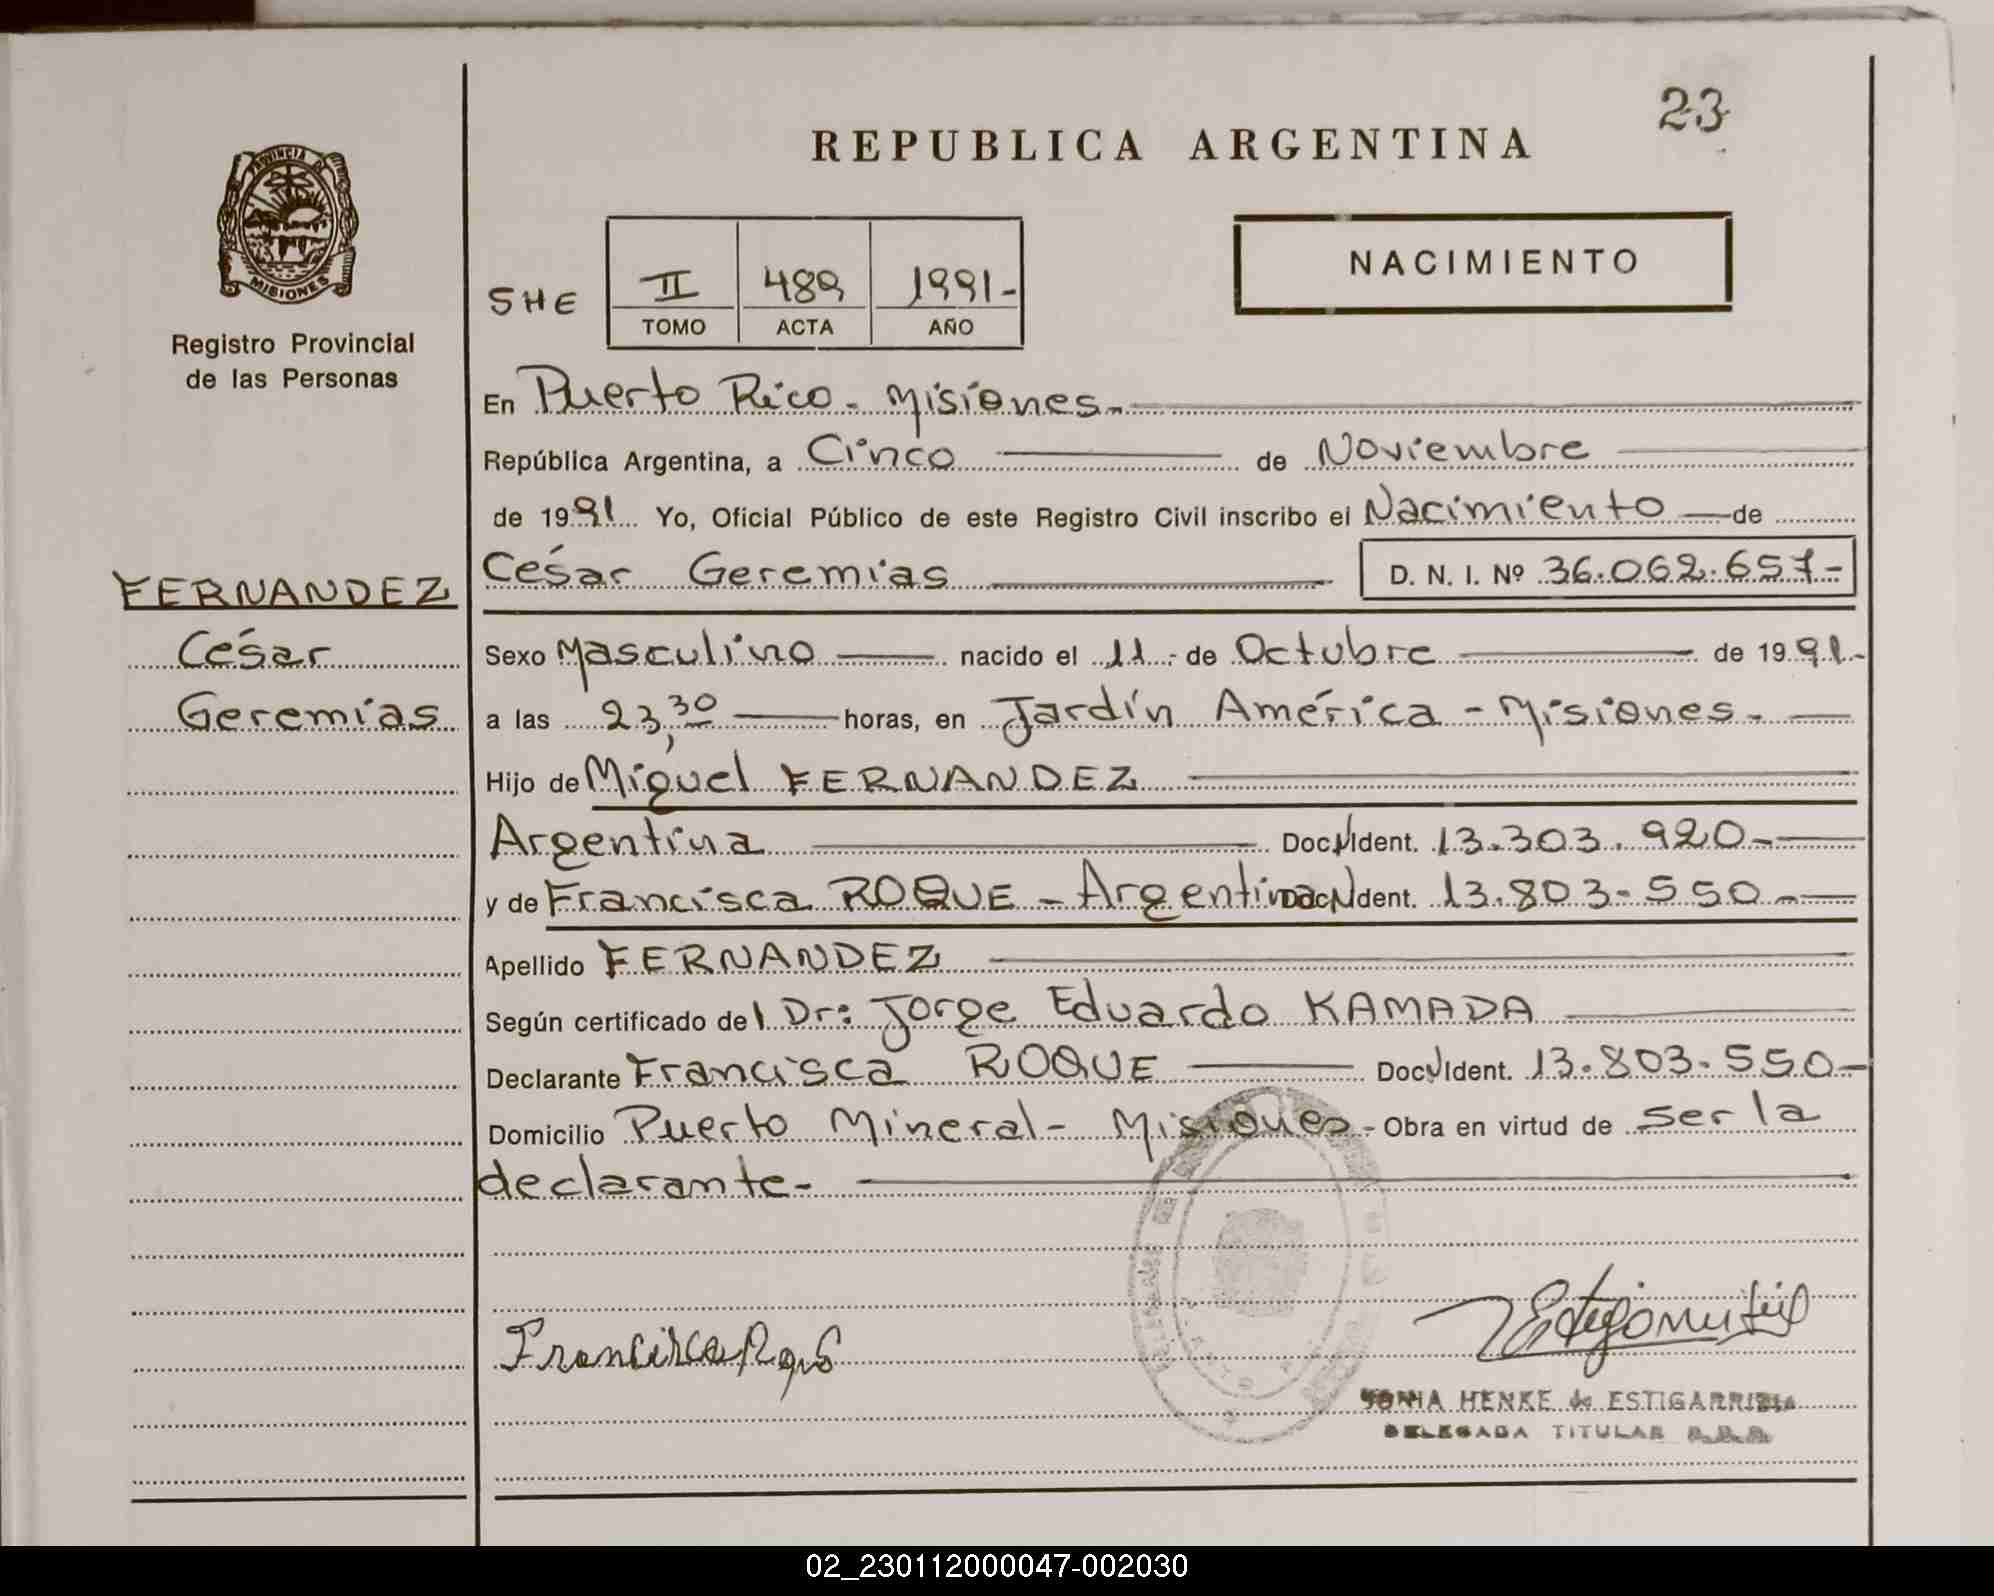 23
REPUBLICA ARGENTINA
PROVINCIA DE
MISIONES
Registro Provincial
de las Personas
NACIMIENTO
SHE
II 489 1991-
TOMO ACTA AÑO
En Puerto Rico - Misiones.-
República Argentina, a Cinco de Noviembre
de 1991 Yo, Oficial Público de este Registro Civil inscribo el Nacimiento de
César Geremias D. N. I. Nº 36.062.657-
FERNANDEZ
César
Geremias
Sexo Masculino nacido el 11.- de Octubre de 1991.-
a las 23,30 horas, en Jardín América - Misiones.-
Hijo de Miguel FERNANDEZ
Argentina Doc. Ident. 13.303.920.-
y de Francisca ROQUE - Argentina Doc. Ident. 13.803.550.-
Apellido FERNANDEZ
Según certificado del Dr: Jorge Eduardo KAMADA
Declarante Francisca ROQUE Doc. Ident. 13.803.550-
Domicilio Puerto Mineral - Misiones - Obra en virtud de ser la
declarante.-
SONIA HENKE de ESTIGARRIBIA
DELEGADA TITULAR
02_230112000047-002030